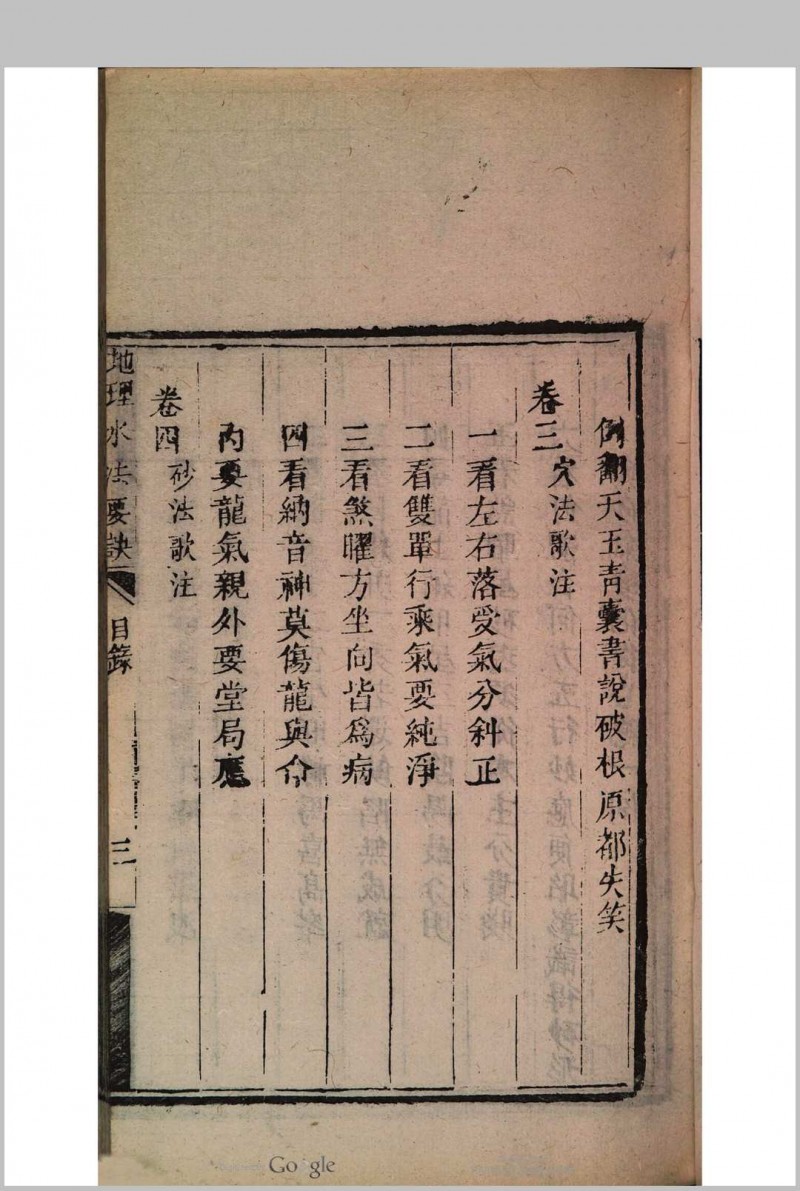 倒翻天玉青囊書說破根原都失笑
卷三 穴法歌注
一看左右落受氣分斜正
二看雙單行乘氣要純淨
三看煞曜方坐向皆爲病
四看納音神莫傷龍與命
內要龍氣親外要堂局應
卷四 砂法歌注
地理水法要訣 目錄 三
Google